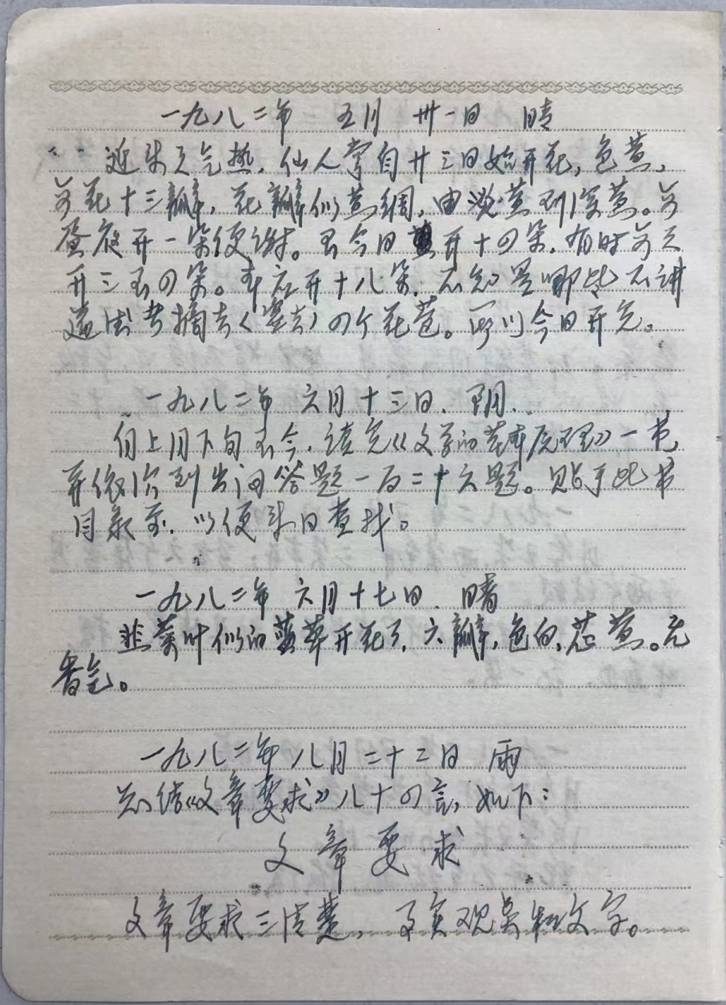 一九八二年 五月 卅一日 晴
近来天气热,仙人掌自廿三日始开花,色黄,
每花十三瓣,花瓣似黄绸,由淡黄到深黄。每
昼夜开一朵便谢。至今日共开十四朵,有时每天
开三至四朵。本应开十八朵,不知是哪些不讲
道德者摘去(害去)四个花苞。所以今日开完。
一九八二年 六月 十三日. 阴.
自上月下旬至今,读完《文学的基本原理》一书,
并依次列出问答题一百二十六题。贴于此书
目录前,以便来日查找。
一九八二年 六月 十七日. 晴
韭菜叶似的 草开花了,六瓣,色白,芯黄。无
香气。
一九八二年 八月 二十二日 雨
总结《文章要求》八十四言,如下:
文章要求
文章要求三清楚, 事实观点和文字。